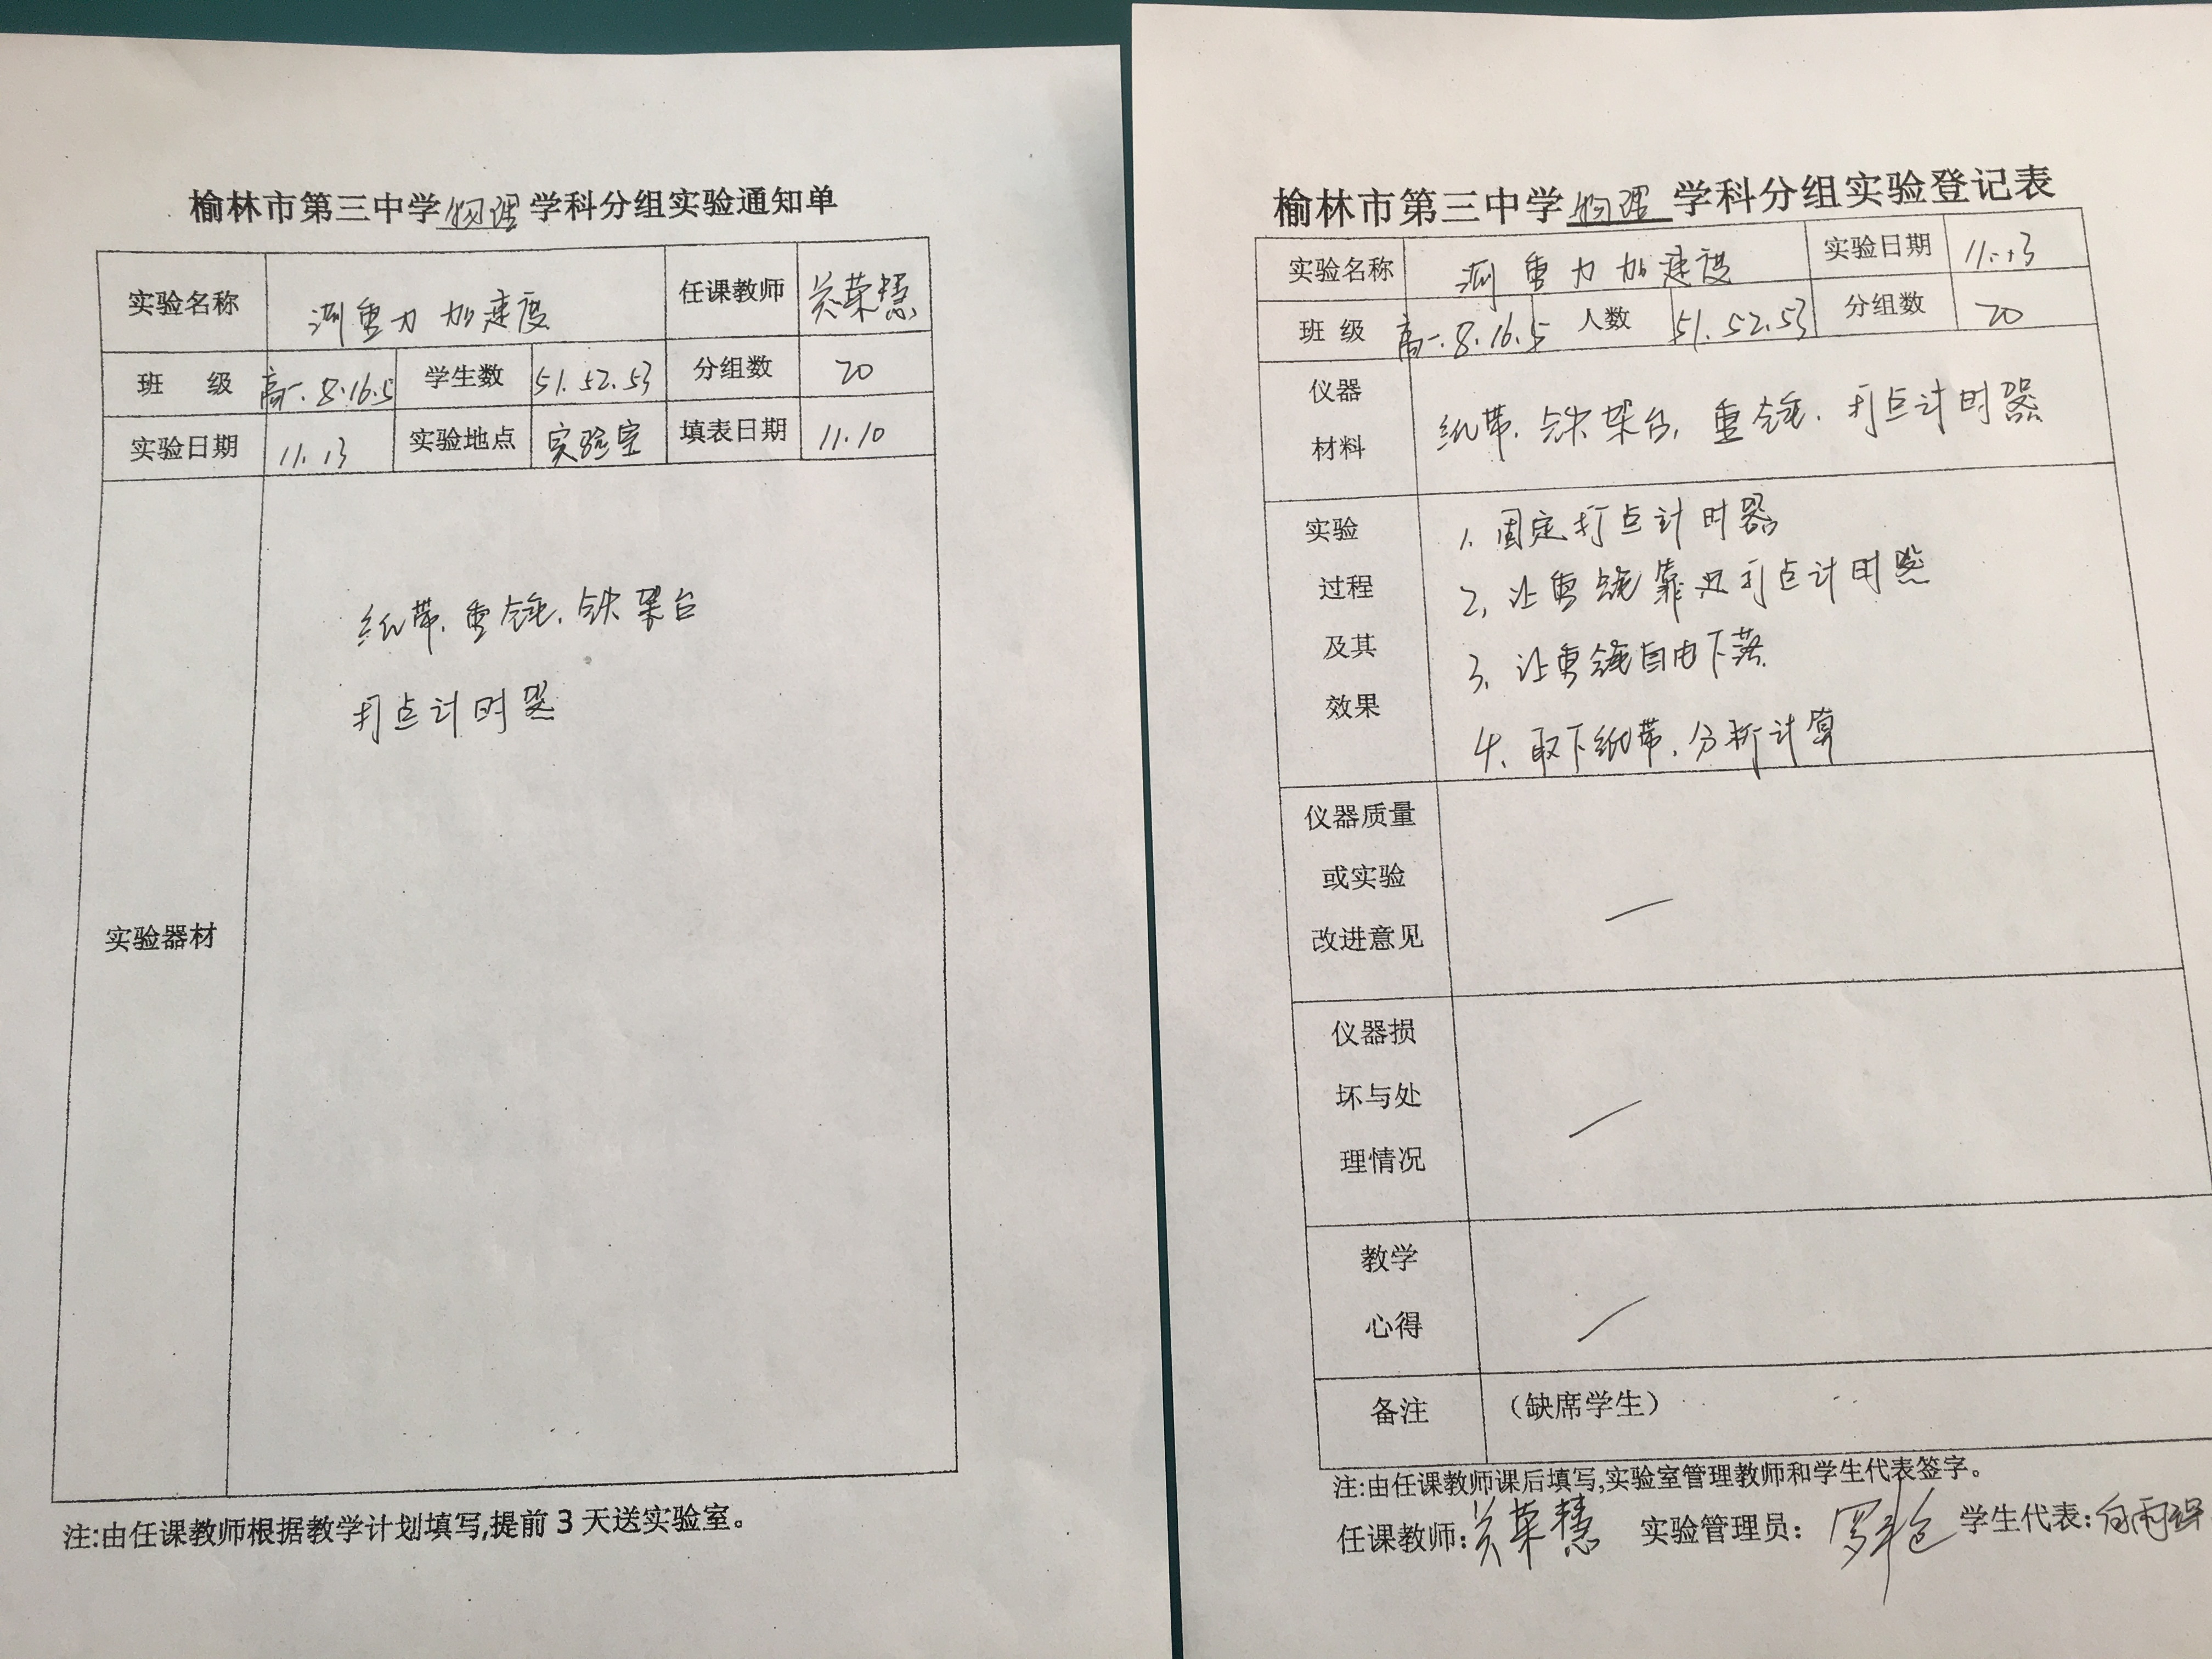 榆林市第三中学物理学科分组实验通知单
实验名称 测重力加速度 任课教师 关荣慧
班 级 高一.8.16.5 学生数 51.52.53 分组数 20
实验日期 11.13 实验地点 实验室 填表日期 11.10
实验器材
纸带.重锤.铁架台
打点计时器
注:由任课教师根据教学计划填写,提前3天送实验室。
榆林市第三中学物理学科分组实验登记表
实验名称 测重力加速度 实验日期 11.13
班 级 高一.8.16.5 人数 51.52.53 分组数 20
仪器
材料
纸带.铁架台.重锤.打点计时器
实验
过程
及其
效果
1.固定打点计时器
2、让重锤靠近打点计时器
3、让重锤自由下落
4、取下纸带.分析计算
仪器质量
或实验
改进意见
仪器损
坏与处
理情况
教学
心得
备注 (缺席学生)
注:由任课教师课后填写,实验室管理教师和学生代表签字。
任课教师:关荣慧 实验管理员: 学生代表: